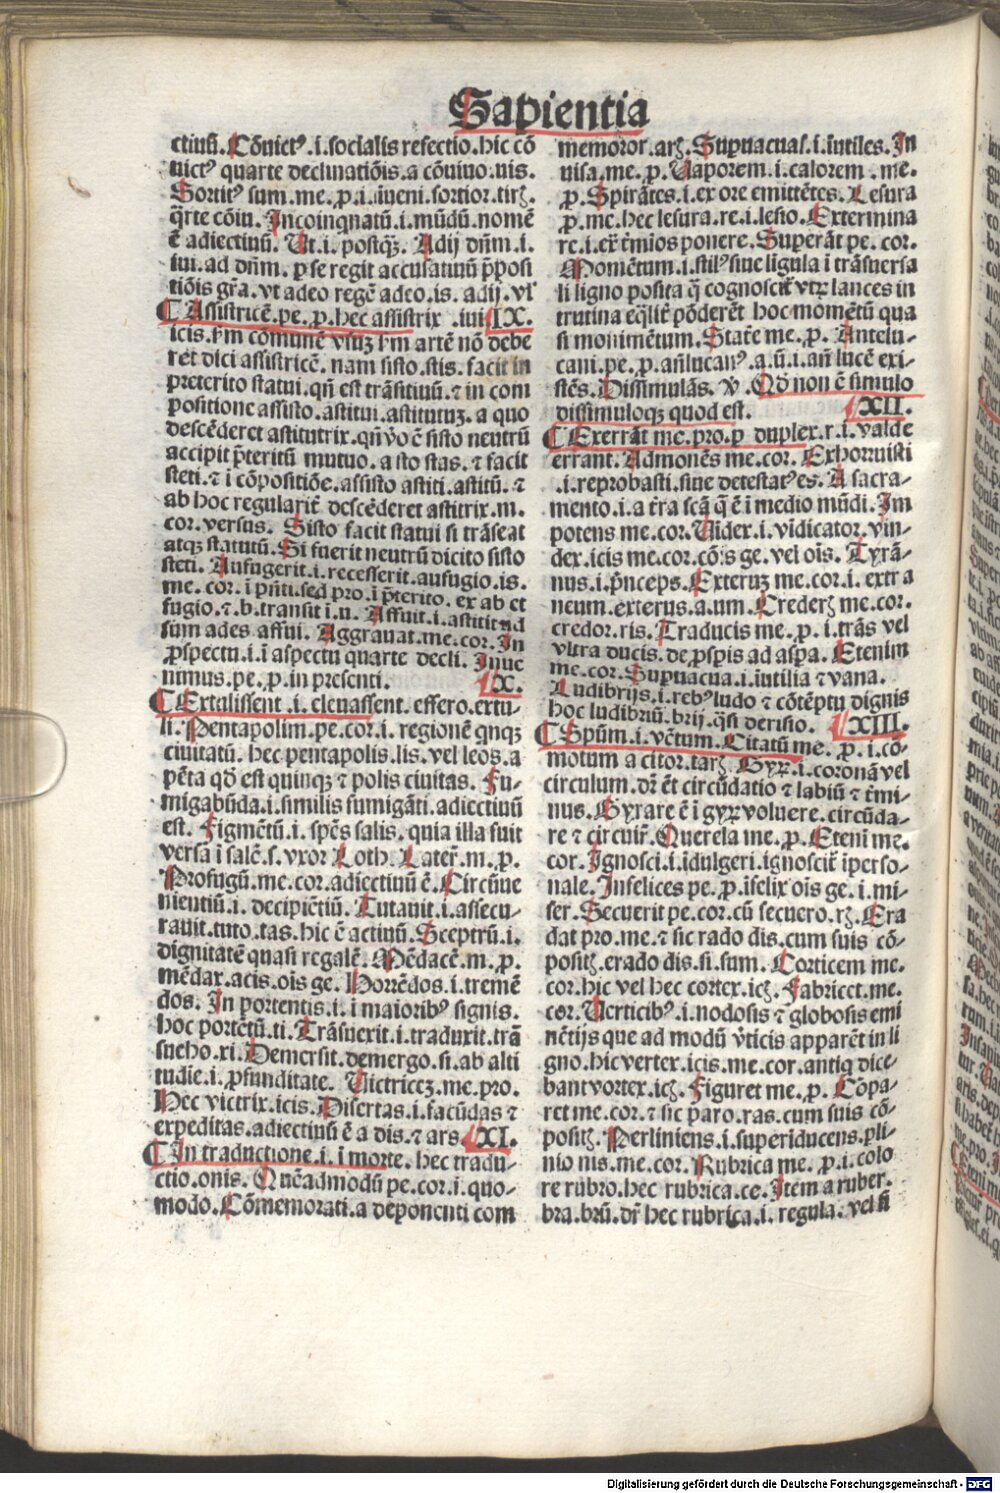 Sapientia
ctiuū. Cōuict⁹.i.socialis refectio.hic cō
uict⁹ quarte declinatiōis.a cōuiuo.uis.
Sortit⁹ sum.me.ꝑ.i.īueni.sortior.tirꝫ.
q̄rte cōiu. Incoinqnatū.i.mūdū.nomē
ē adiectiuū. Ut.i.postqꝫ. Adij dn̄m.i.
iui.ad dn̄m. ꝑ se regit accusatiuū p̄posi
tiōis gr̄a. vt adeo regē adeo.is. adij. vl'
¶ Assistricē.pe.ꝑ.hec assistrix .iui IX.
icis. s'm cōmunē vsuꝫ s'm artē nō debe
ret dici assistricē. nam sisto.stis. facit in
preterito statui.qn̄ est trāsitiuū.⁊ in com
positione assisto.astitui.astitutuꝫ. a quo
descēderet astitutrix.qn̄ v̓o ē sisto neutrū
accipit p̄teritū mutuo. a sto stas. ⁊ facit
steti.⁊ i cōpositiōe.assisto astiti.astitū. ⁊
ab hoc regularit̄ descēderet astitrix.m.
cor.versus. Sisto facit statui si trāseat
atqꝫ statutū. Si fuerit neutrū dicito sisto
steti. Aufugerit.i.recesserit.aufugio.is.
me. cor. i pn̄ti.sed pro.i p̄terito. ex ab et
fugio.⁊.b.transit i.u. Affuit.i.astitit ad
sum ades.affui. Aggrauat.me.cor. In
ꝓspectu.i.ī aspectu quarte decli. Inue
nimus.pe.ꝑ.in presenti. X.
¶ Extulissent .i. eleuassent. effero.extu-
li. Pentapolim.pe.cor.i.regionē qnqꝫ
ciuitatū. hec pentapolis.lis. vel leos.a
pēta qđ est quinqꝫ ⁊ polis ciuitas. Fu-
migabūda.i.similis fumigāti.adiectiuū
est. Figmētū.i. spēs salis. quia illa fuit
versa ī salē.s.vxor Loth. Later̄.m.ꝑ.
Profugū.me.cor.adiectiuū ē. Circūue
nientiū.i. decipiētiū. Tutauit.i.assecu-
rauit.tuto.tas.hic ē actiuū. Sceptrū.i.
dignitatē quasi regalē. Mēdacē.m.ꝑ.
mēdax.acis.oīs ge. Horrēdos.i.tremē
dos. In portentis.i. i maiorib⁹ signis.
hoc portētū.ti. Trāsuexit.i.traduxit.trā
sueho.xi. Demersit.demergo.si.ab alti
tudie.i. ꝓfunditate. Uictriceꝫ.me.pro.
Hec victrix.icis. Disertas.i.facūdas ⁊
expeditas.adiectiuū ē a dis.⁊ ars. XI.
¶ In traductione.i. i morte. hec tradu-
ctio.onis. Quēadmodū pe.cor.i.quo-
modo. Cōmemorati.a deponenti com
memoror.arꝫ. Supuacuas.i.iutiles. In
uisa.me.ꝑ. Uaporem.i.calorem .me.
ꝑ. Spirātes.i.ex ore emittētes. Lesura
ꝑ.me.hec lesura.re.i.lesio. Extermina
re.i.ex̄ t̓mios ponere. Superāt pe. cor.
Momētum.i.stil⁹ siue lingula i trāsuersa
li ligno posita q̄ cognoscit̄ vtrꝫ lances in
trutina eq̄lit̄ pōderēt hoc momētū qua
si monimētum. Statē me.ꝑ. Antelu-
cani.pe.ꝑ.an̄lucan⁹.a.ū.i.an̄ lucē exi-
stēs. Dissimulās. v̓. Qđ non ē simulo
dissimuloqꝫ quod est. XII.
¶ Exerrāt me.pro.ꝑ duplex.r.i.valde
errant. Admonēs me.cor. Exhorruisti
.i.reprobasti.siue detestat⁹ es. A sacra-
mento.i.a t̄ra scā q̄ ē i medio mūdi. Im
potens me.cor. Uidex.i.vidicator.vin-
dex.icis me.cor.cō.s ge. vel oīs. Tyrā-
nus.i.p̄nceps. Exteruꝫ me.cor.i.extra
neum.exterus.a.um. Crederꝫ me.cor.
credor.ris. Traducis me.ꝑ.i.trās vel
vltra ducis. de ꝓspis ad aspa. Etenim
me.cor. Supuacua.i.inutilia ⁊ vana.
Ludibrijs.i.reb⁹ ludo ⁊ cōtēptu dignis
hoc ludibriū.brij.q̄si derisio. XIII.
¶ Spūm.i.vētum. Citatū me. ꝑ.i.cō-
motum a citor.tarꝫ. Gyꝝ.i.coronā vel
circulum.dr̄ ēt circūdatio ⁊ labiū ⁊ t̄mi-
nus. Gyrare ē i gyꝝ voluere.circūda-
re ⁊ circuir̄. Querela me.ꝑ. Etenī me.
cor. Ignosci.i.īdulgeri.ignoscit̄ īperso-
nale. Infelices pe.ꝑ.īfelix oīs ge.i.mi-
ser. Secuerit pe.cor.cū secuero.rꝫ. Era
dat pro.me.⁊ sic rado dis.cum suis cō-
positꝫ.erado dis.si.sum. Corticem me.
cor.hic vel hec cortex.icꝫ. Fabricet.me.
cor. Uerticib⁹.i.nodosis ⁊ globosis emi
nētijs que ad modū v̓ticis apparēt in li
gno.hic vertex.icis.me.cor.antiq dice-
bant vortex.icꝫ. Figuret me.ꝑ. Cōpa-
ret me.cor.⁊ sic paro.ras.cum suis cō-
positꝫ. Perliniens.i.superiducens.pli-
nio nis.me.cor. Rubrica me. ꝑ.i.colo
re rubro.hec rubrica.ce. Item a ruber.
bra.brū.dr̄ hec rubrica.i. regula. vel si
Digitalisierung gefördert durch die Deutsche Forschungsgemeinschaft - DFG